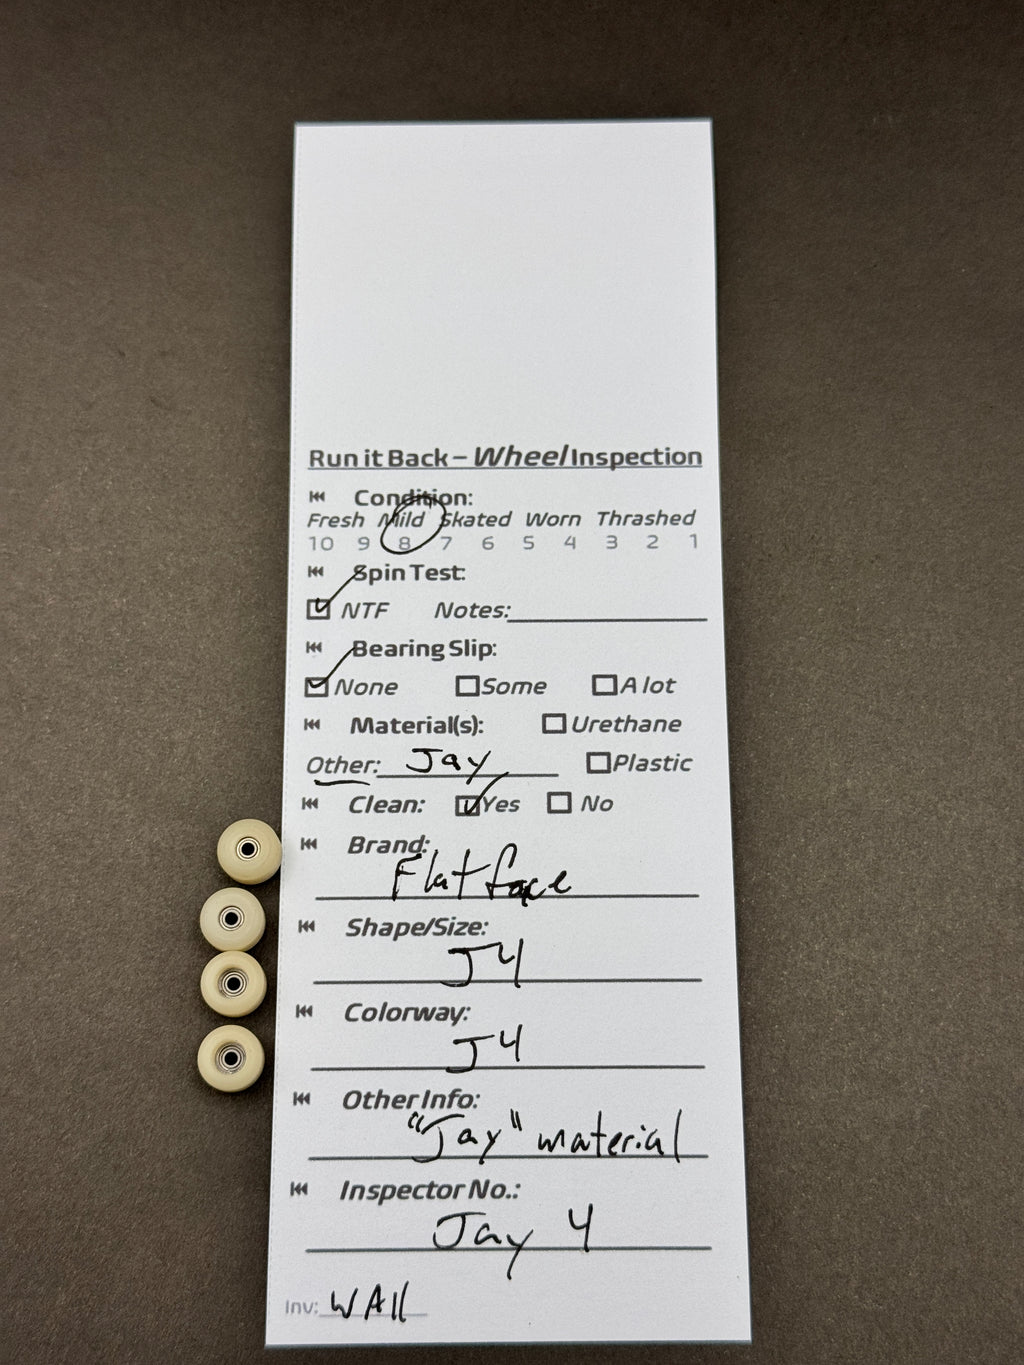 Run it Back – Wheel Inspection
Condition:
Fresh Mild Skated Worn Thrashed
10 9 8 7 6 5 4 3 2 1
Spin Test:
NTF Notes:
Bearing Slip:
None Some A lot
Material(s): Urethane
Other: Jay Plastic
Clean: Yes No
Brand:
Flatface
Shape/Size:
J4
Colorway:
J4
Other Info:
"Jay" material
Inspector No.:
Jay 4
Inv: WAll